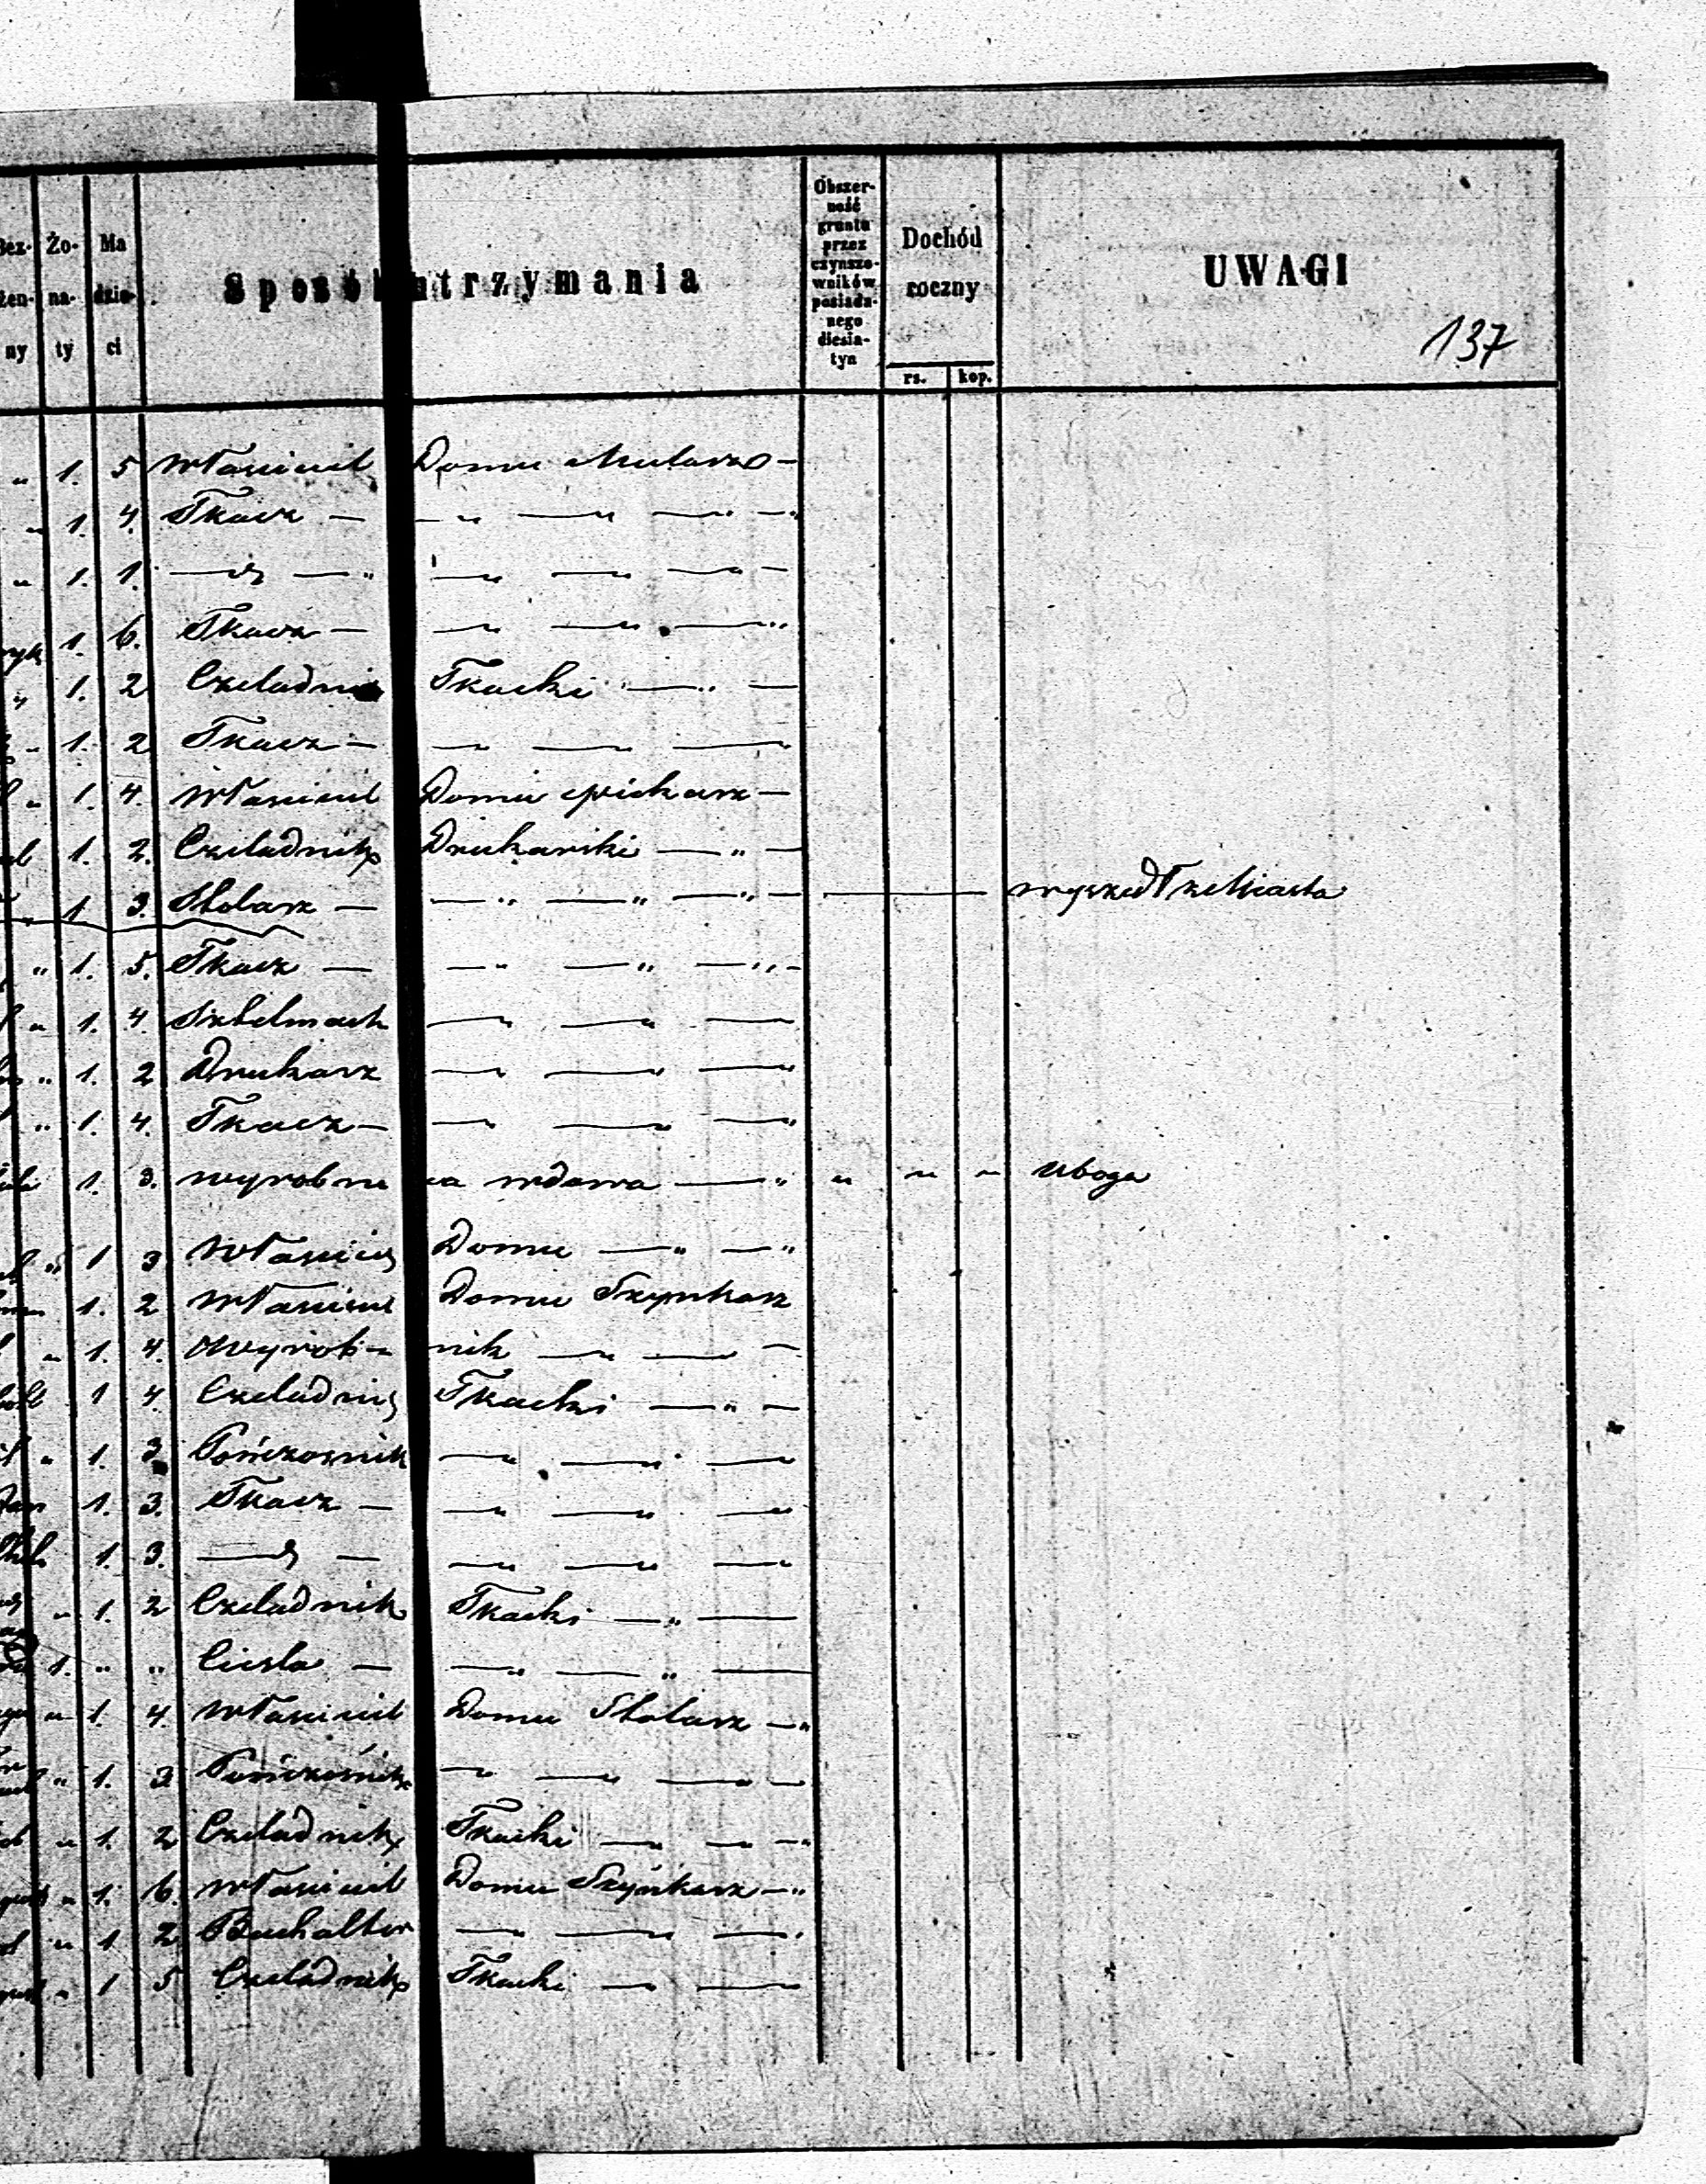 Bez- żen- ny Żo- na- ty Ma dzie- ci Sposób utrzymania Obszer- ność gruntu przez czynszo- wników posiada- nego diesia- tyn Dochód roczny rs. kop. UWAGI
137
" 1. 5 Właściciel Domu Mularz —
" 1. 4. Tkacz — — " — " — " — "
" 1. 1. — " — " — " — " — " —
1. 6. Tkacz — — " — " — "
" 1. 2 Czeladnik Tkacki — " —
" 1. 2 Tkacz — — " — " —
" 1. 4. Właściciel Domu Piekarz —
1. 2. Czeladnik Drukarski — " —
" 1 3. Stolarz — — " — " — " — wyszedł z Miasta
" 1. 5. Tkacz — — " — " — " —
" 1. 4. Sztelmach — " — " —
" 1. 2 Drukarz — " — " —
" 1. 4. Tkacz — — " — " — "
1. 3. wyrobnica wdowa — " " " " Uboga
" 1 3 Właściciel Domu — " — "
1. 2 Właściciel Domu Szynkarz
" 1. 4. Wyrobnik — " — " —
1 4. Czeladnik Tkacki — " —
" 1. 3. Pończosznik — " — " — "
1. 3. Tkacz — — " — " — "
1. 3. — " — — " — " — "
" 1. 2 Czeladnik Tkacki — " —
1. " " Cieśla — — " — " —
" 1. 4. Właściciel Domu Stolarz — "
" 1. 3 Pończosznik — " — " — "
" 1. 2 Czeladnik Tkacki — " — " — "
" 1. 6. Właściciel Domu Szynkarz — "
" 1 2 Buchalter — " — " — "
" 1 5 Czeladnik Tkacki — " —